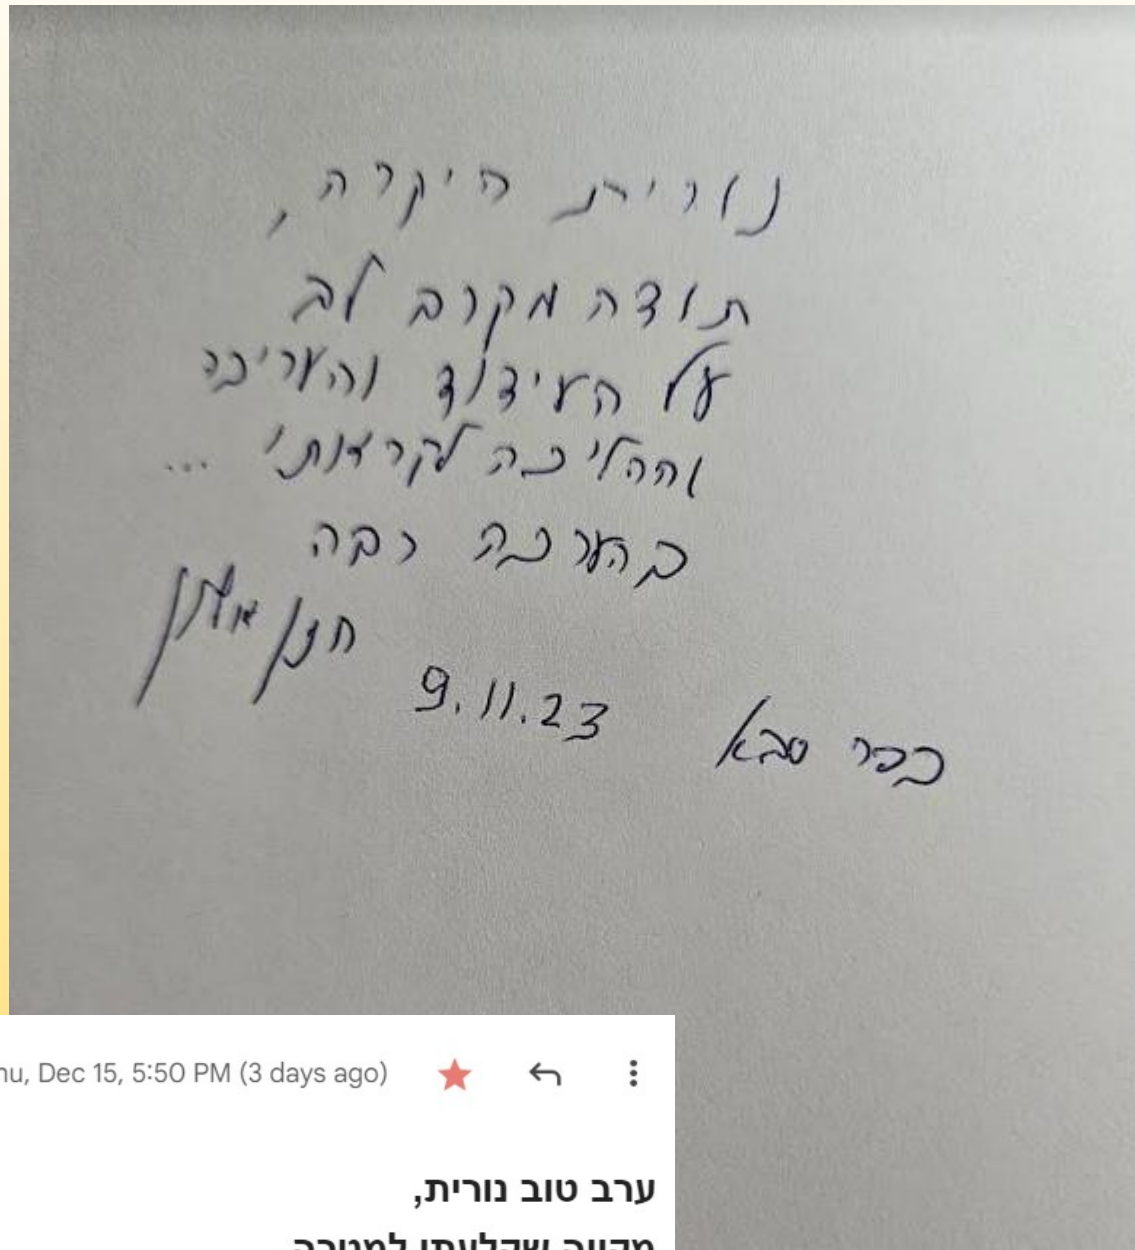 נורית היקרה,
תודה מקרב לב
על העידוד והעריכה
וההליכה לקראתי ...
בהערכה רבה
חזן
9.11.23
כפר סבא
Dec 15, 5:50 PM (3 days ago)
ערב טוב נורית,
מקווה שקלעתי למטרה